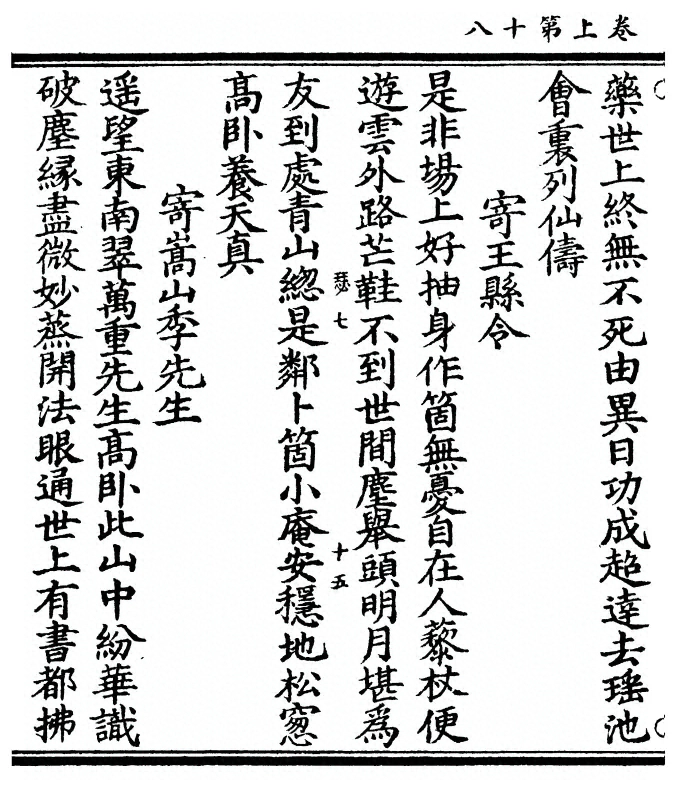 卷上第十八
藥世上終無不死由異日功成超達去瑶池
會裏列仙儔
寄王縣令
是非場上好抽身作箇無憂自在人藜杖便
遊雲外路芒鞋不到世間塵舉頭明月堪爲
瑟七
十五
友到處青山緫是鄰卜箇小庵安穩地松窓
髙卧養天真
寄嵩山李先生
遥望東南翠萬重先生髙卧此山中紛華識
破塵縁盡微妙蒸開法眼通世上有書都拂